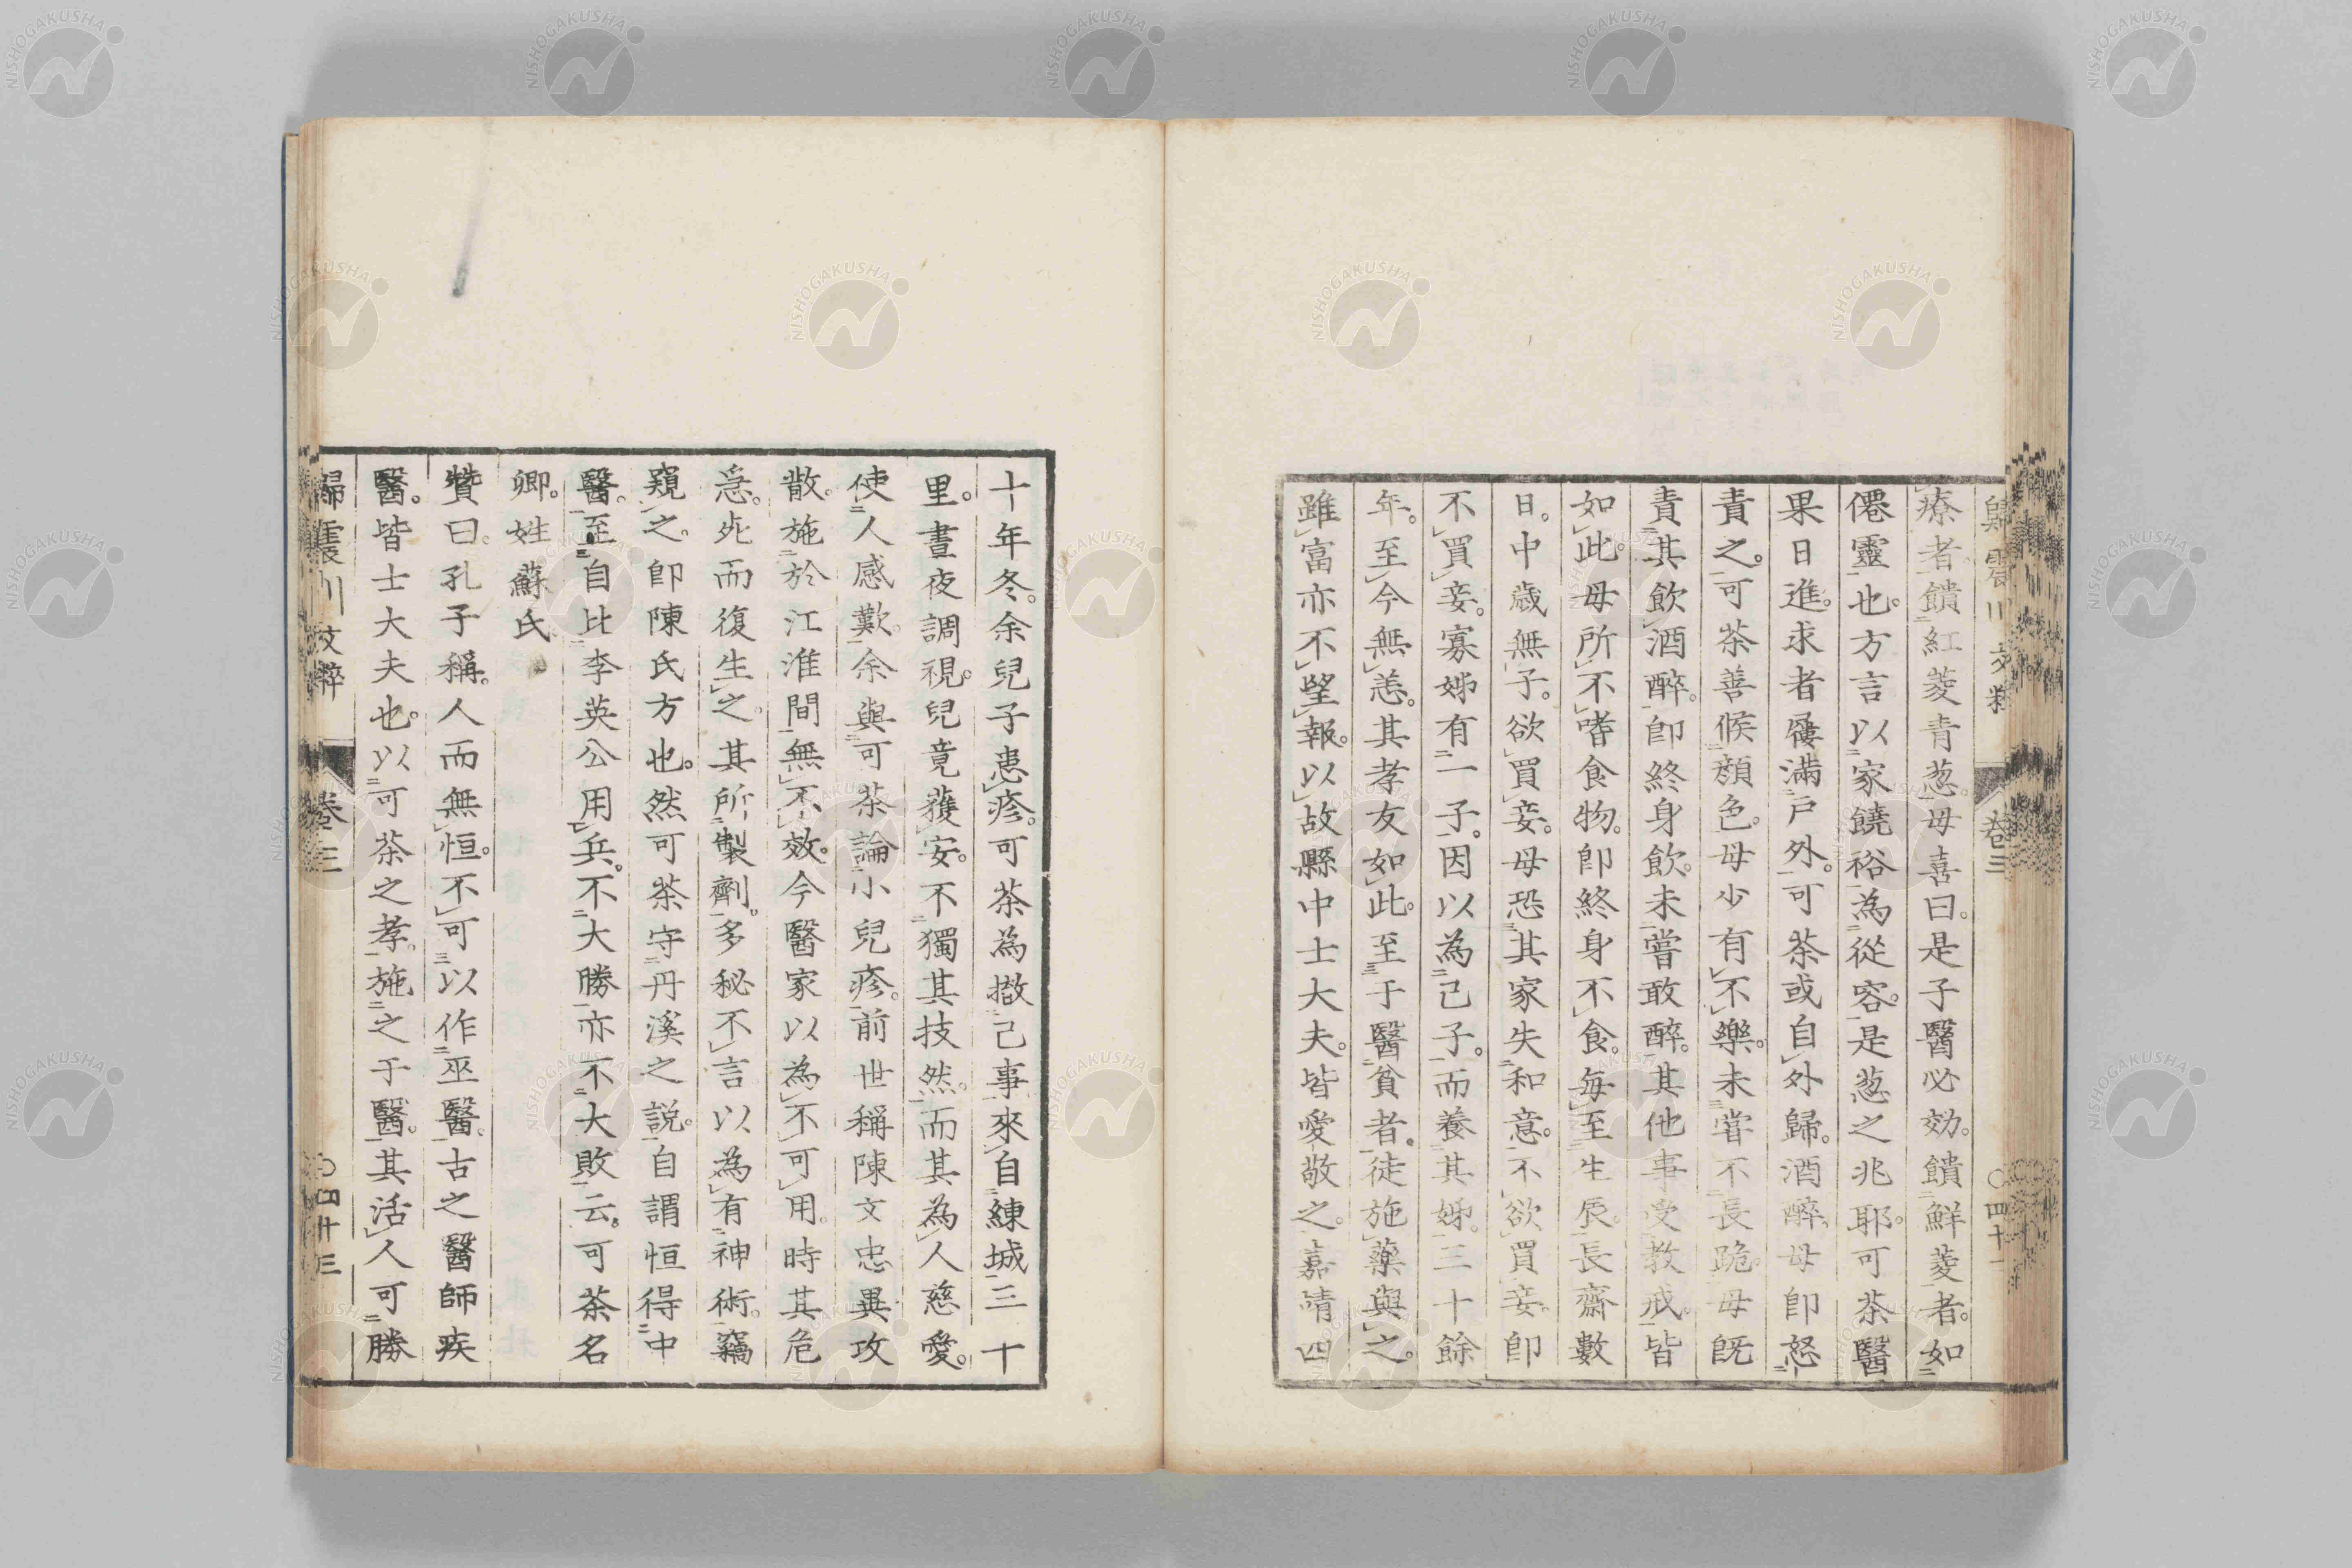 歸震川文粹 卷三 〇四十
療者。饋紅菱青葱。母喜曰。是子醫必効。饋鮮菱者。如
僊靈也。方言以家饒裕為從容。是葱之兆耶。可茶醫
果日進。求者屨滿戸外。可茶或自外歸。酒醉。母即怒
責之。可茶善候顔色。母少有不樂。未嘗不長跪。母既
責其飲酒醉。即終身飲。未嘗敢醉。其他事受教戒。皆
如此。母所不嗜食物。即終身不食。每至生辰。長齋數
日。中歳無子。欲買妾。母恐其家失和意。不欲買妾。即
不買妾。寡姊有一子。因以為己子。而養其姊。三十餘
年。至今無恙。其孝友如此。至于醫貧者。徒施藥與之。
雖富亦不望報。以故縣中士大夫。皆愛敬之。嘉靖四
十年冬。余兒子患疹。可茶為撤己事來。自練城三十
里。晝夜調視。兒竟獲安。不獨其技然。而其為人慈愛。
使人感歎。余與可茶論小兒疹。前世稱陳文忠異攻
散。施於江淮間。無不效。今醫家以為不可用。時其危
急。死而復生之。其所製劑。多秘不言。以為有神術。竊
窺之。即陳氏方也。然可茶守丹溪之説。自謂恒得中
醫。至自比李英公用兵。不大勝亦不大敗云。可茶名
卿。姓蘇氏。
贊曰。孔子稱。人而無恒。不可以作巫醫。古之醫師疾
醫。皆士大夫也。以可茶之孝。施之于醫。其活人可勝
歸震川文粹 卷三 〇四十三